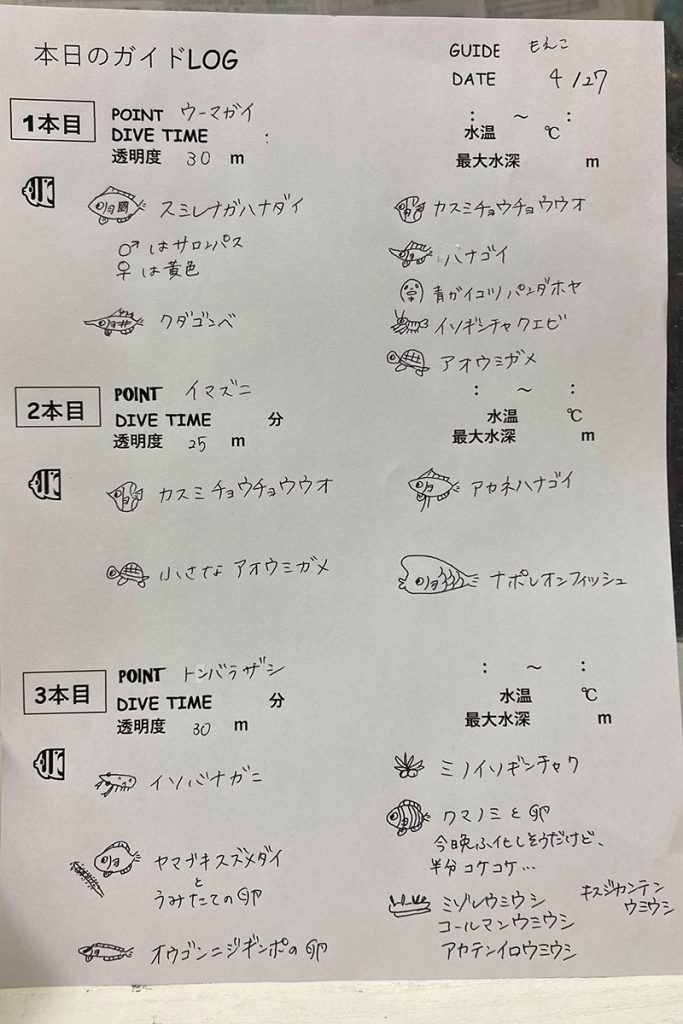 本日のガイドLOG
GUIDE もえこ
DATE 4/27
1本目
POINT ウーマガイ
DIVE TIME :
透明度 30 m
: ～ :
水温 ℃
最大水深 m
スミレナガハナダイ
♂はサロンパス
♀は黄色
クダゴンベ
カスミチョウチョウウオ
ハナゴイ
青ガイコツパンダホヤ
イソギンチャクエビ
アオウミガメ
2本目
POINT イマズニ
DIVE TIME 分
透明度 25 m
: ～ :
水温 ℃
最大水深 m
カスミチョウチョウウオ
小さなアオウミガメ
アカネハナゴイ
ナポレオンフィッシュ
3本目
POINT トンバラザシ
DIVE TIME 分
透明度 30 m
: ～ :
水温 ℃
最大水深 m
イソバナガニ
ヤマブキスズメダイ
と
うみたての卵
オウゴンニジギンポの卵
ミノイソギンチャク
クマノミと卵
今晩ふ化しそうだけど、
半分コケコケ…
ミゾレウミウシ
コールマンウミウシ
アカテンイロウミウシ
キスジカンテン
ウミウシ